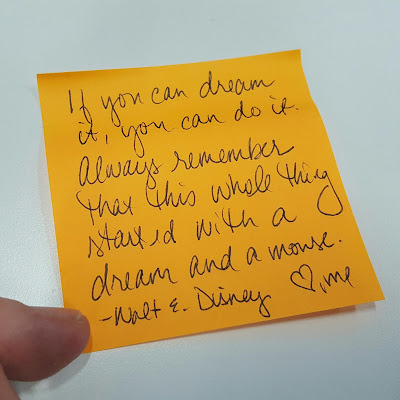 If you can dream
it, you can do it.
Always remember
that this whole thing
started with a
dream and a mouse.
-Walt E. Disney ♡, me